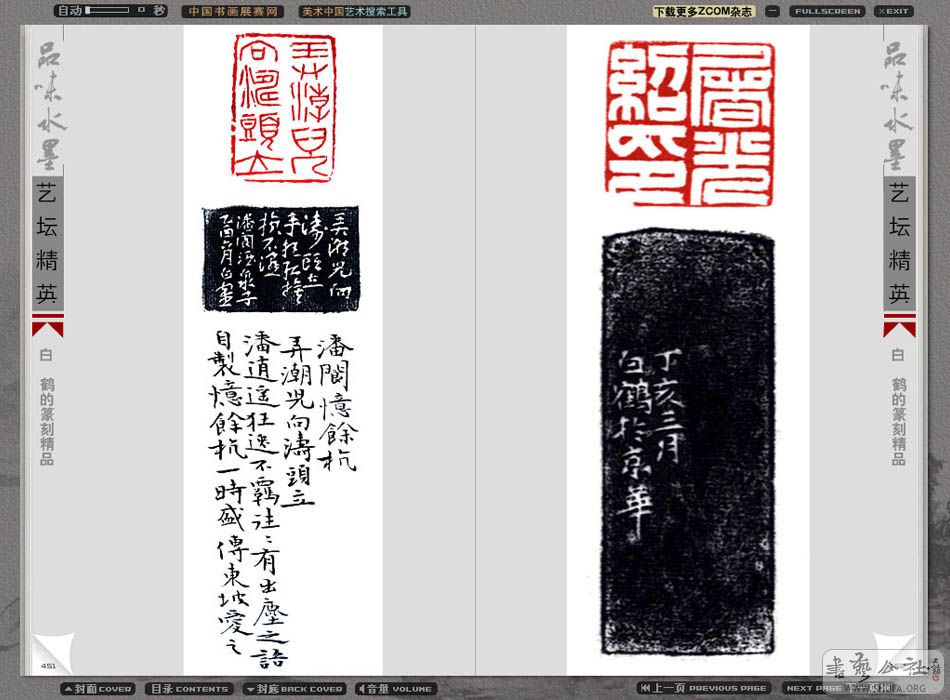 自动 秒
中国书画展赛网
美术中国艺术搜索工具
下载更多ZCOM杂志
FULLSCREEN
EXIT
品味水墨
艺坛精英
白 鹤的篆刻精品
弄潮兒
向濤頭立
弄潮兒向
濤頭立
手把紅旗
旗不濕
潘閬酒泉子
乙酉六月白鶴
潘閬憶餘杭
弄潮兒向濤頭立
潘逍遥狂逸不羈往〻有出塵之語
自製憶餘杭一時盛傳東坡愛之
451
屠光
紹印
丁亥三月
白鶴於京華
品味水墨
艺坛精英
白 鹤的篆刻精品
封面 COVER
目录 CONTENTS
封底 BACK COVER
音量 VOLUME
上一页 PREVIOUS PAGE
NEXT PAGE
書藝公社